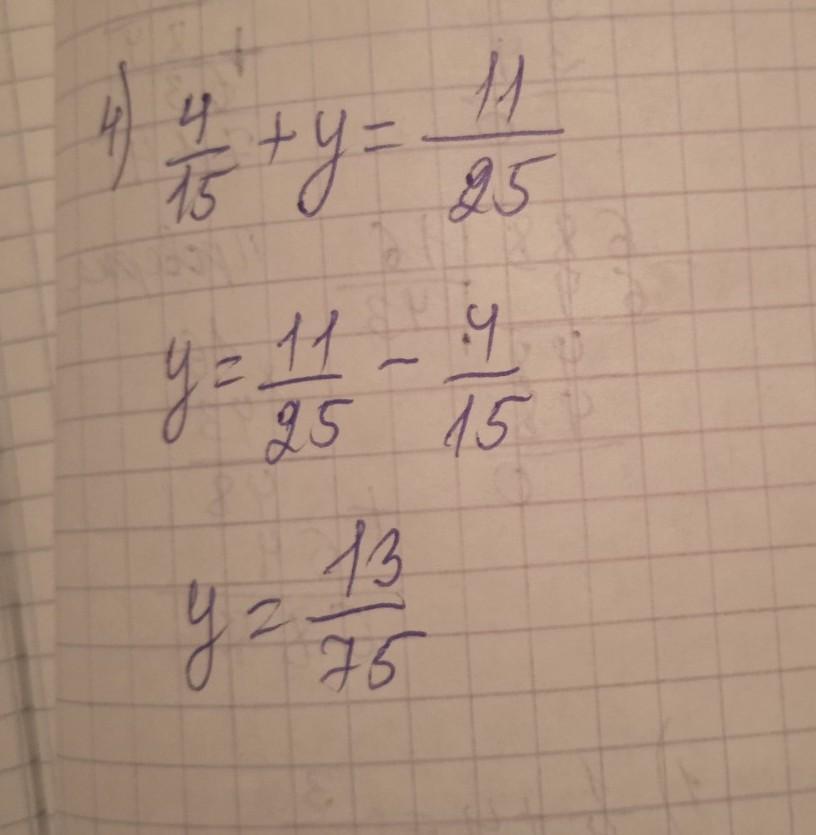 4) 4/15 + y = 11/25
y = 11/25 - 4/15
y = 13/75